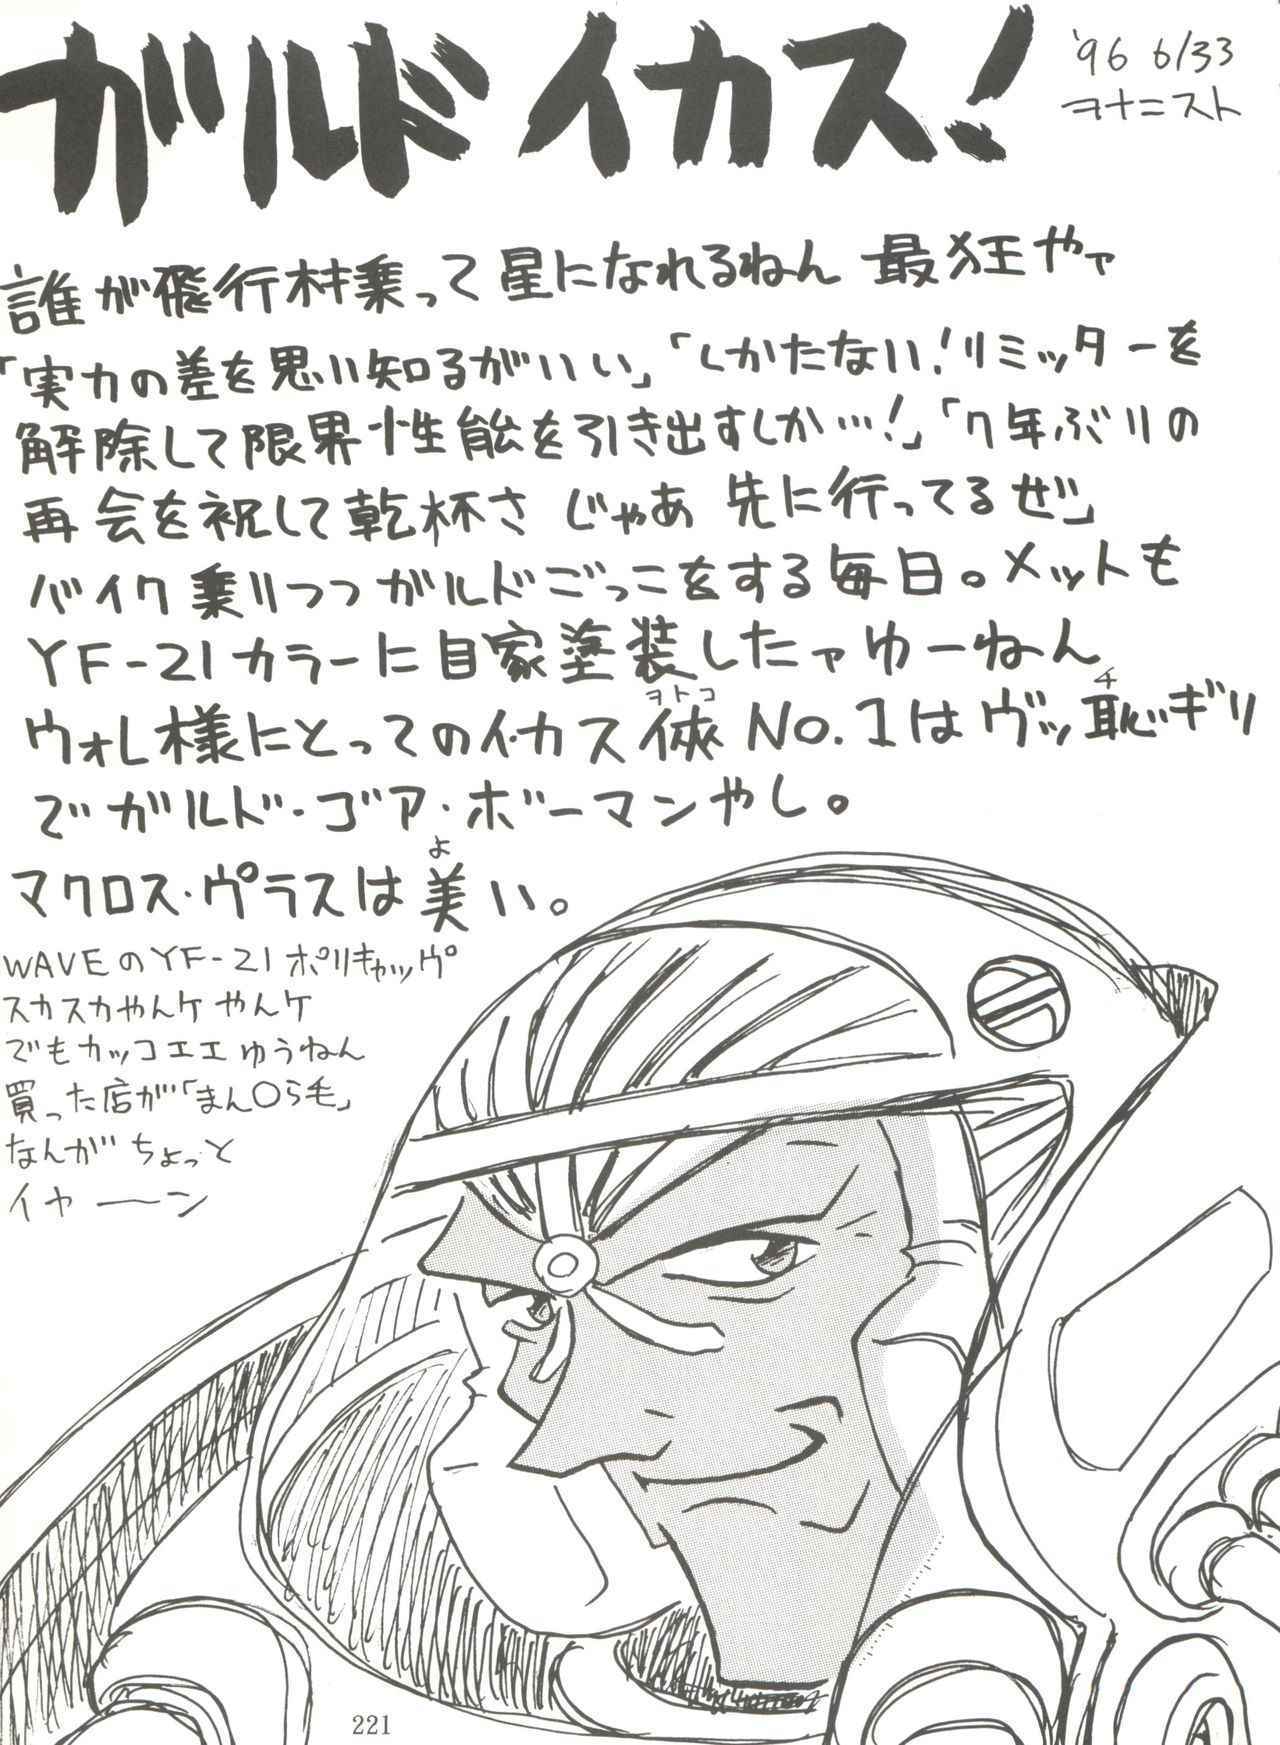 ガルドイカス!
'96 6/33
ヲナニスト
誰が飛行材乗って星になれるねん 最狂やァ
「実力の差を思い知るがいい」「しかたない!リミッターを
解除して限界性能を引き出すしか…!」「7年ぶりの
再会を祝して乾杯さ じゃあ 先に行ってるぜ」
バイク乗りつつガルドごっこをする毎日。メットも
YF-21カラーに自家塗装したァゆーねん
ヲトコ
チ
ウォレ様にとってのイ・カス俠 NO.1はヴッ恥ギリ
でガルド・ゴア・ボーマンやし。
よ
マクロス・プラスは美い。
WAVEのYF-21 ポリキャップ
スカスカやんケ やんケ
でもカッコエエゆうねん
買った店が「まん〇ら毛」
なんが ちょっと
イヤーン
221